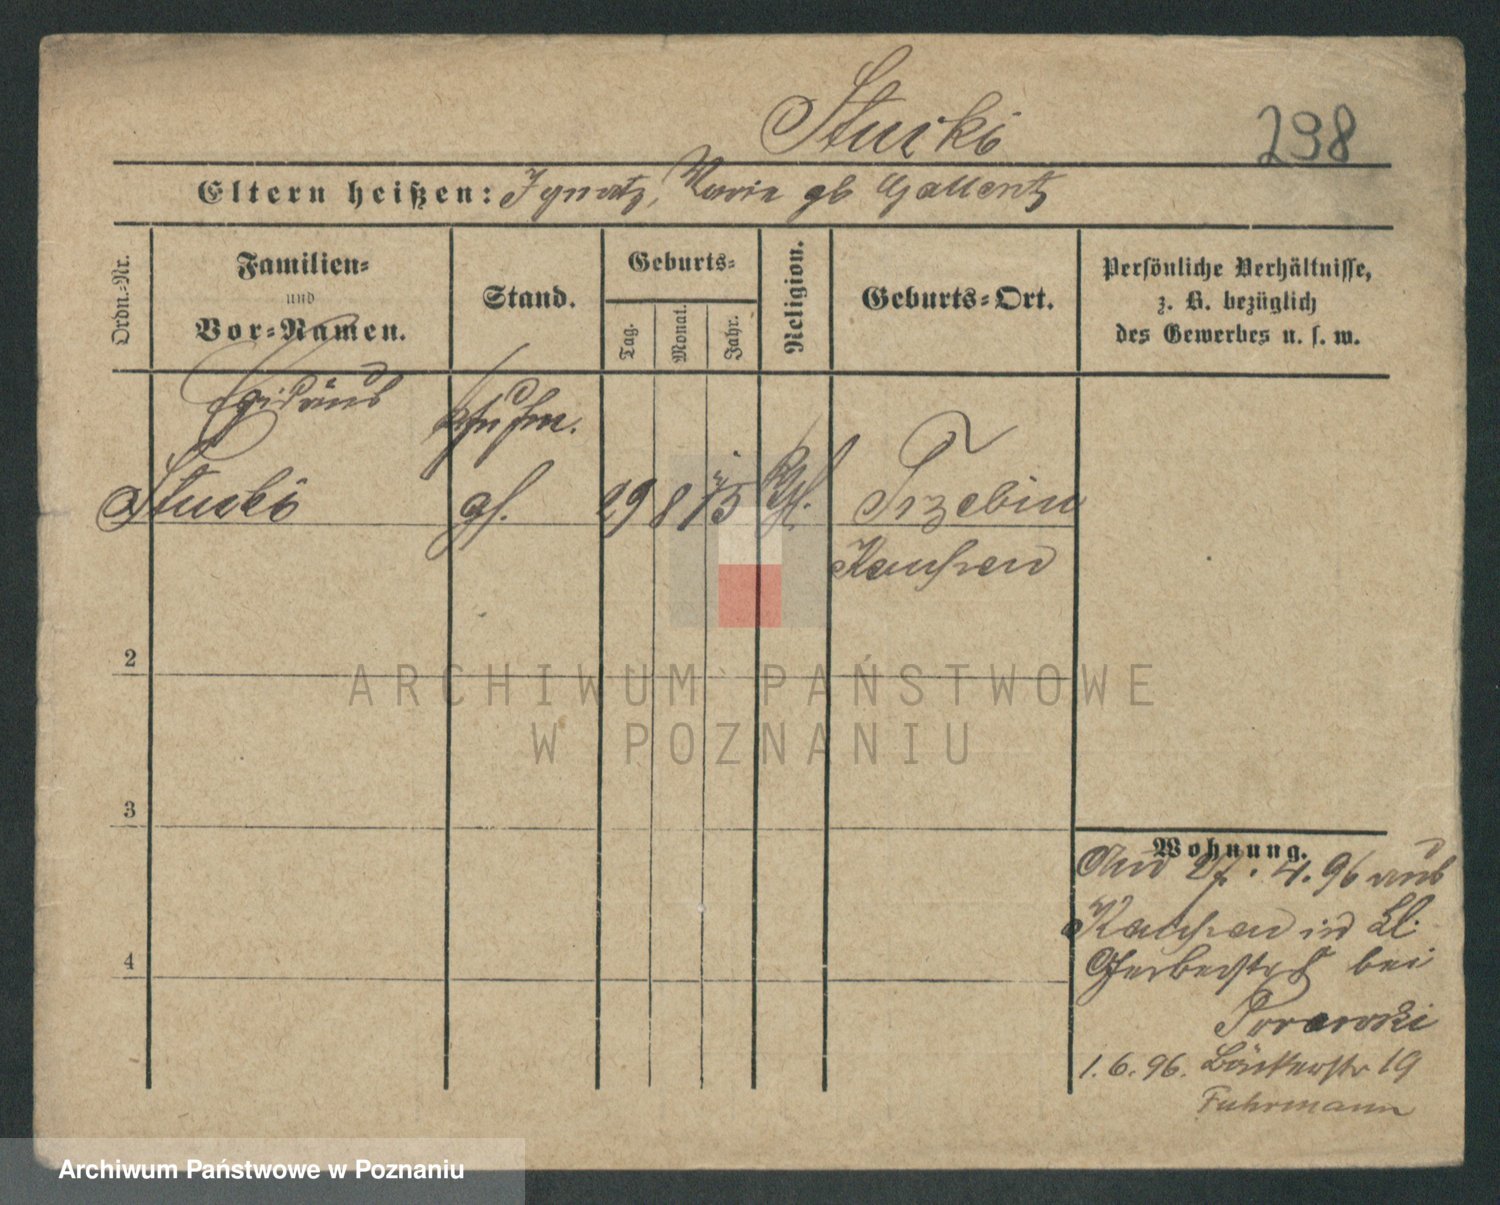 Stucki
298
Eltern heißen: Ignatz, Marie gb Gallentz
Ordn.-Nr.
Familien-
und
Vor-Namen.
Stand.
Geburts-
Tag.
Monat.
Jahr.
Religion.
Geburts-Ort.
Persönliche Verhältnisse,
z. B. bezüglich
des Gewerbes u. s. w.
Egidius
Stucki
gs.
29 8 75
Kth.
Trzebin
2
3
4
Wohnung.
27. 4. 96 aus
in Kl.
Gerberstr bei
1. 6. 96. Bäckerstr 19
Fuhrmann
ARCHIWUM PAŃSTWOWE
W POZNANIU
Archiwum Państwowe w Poznaniu